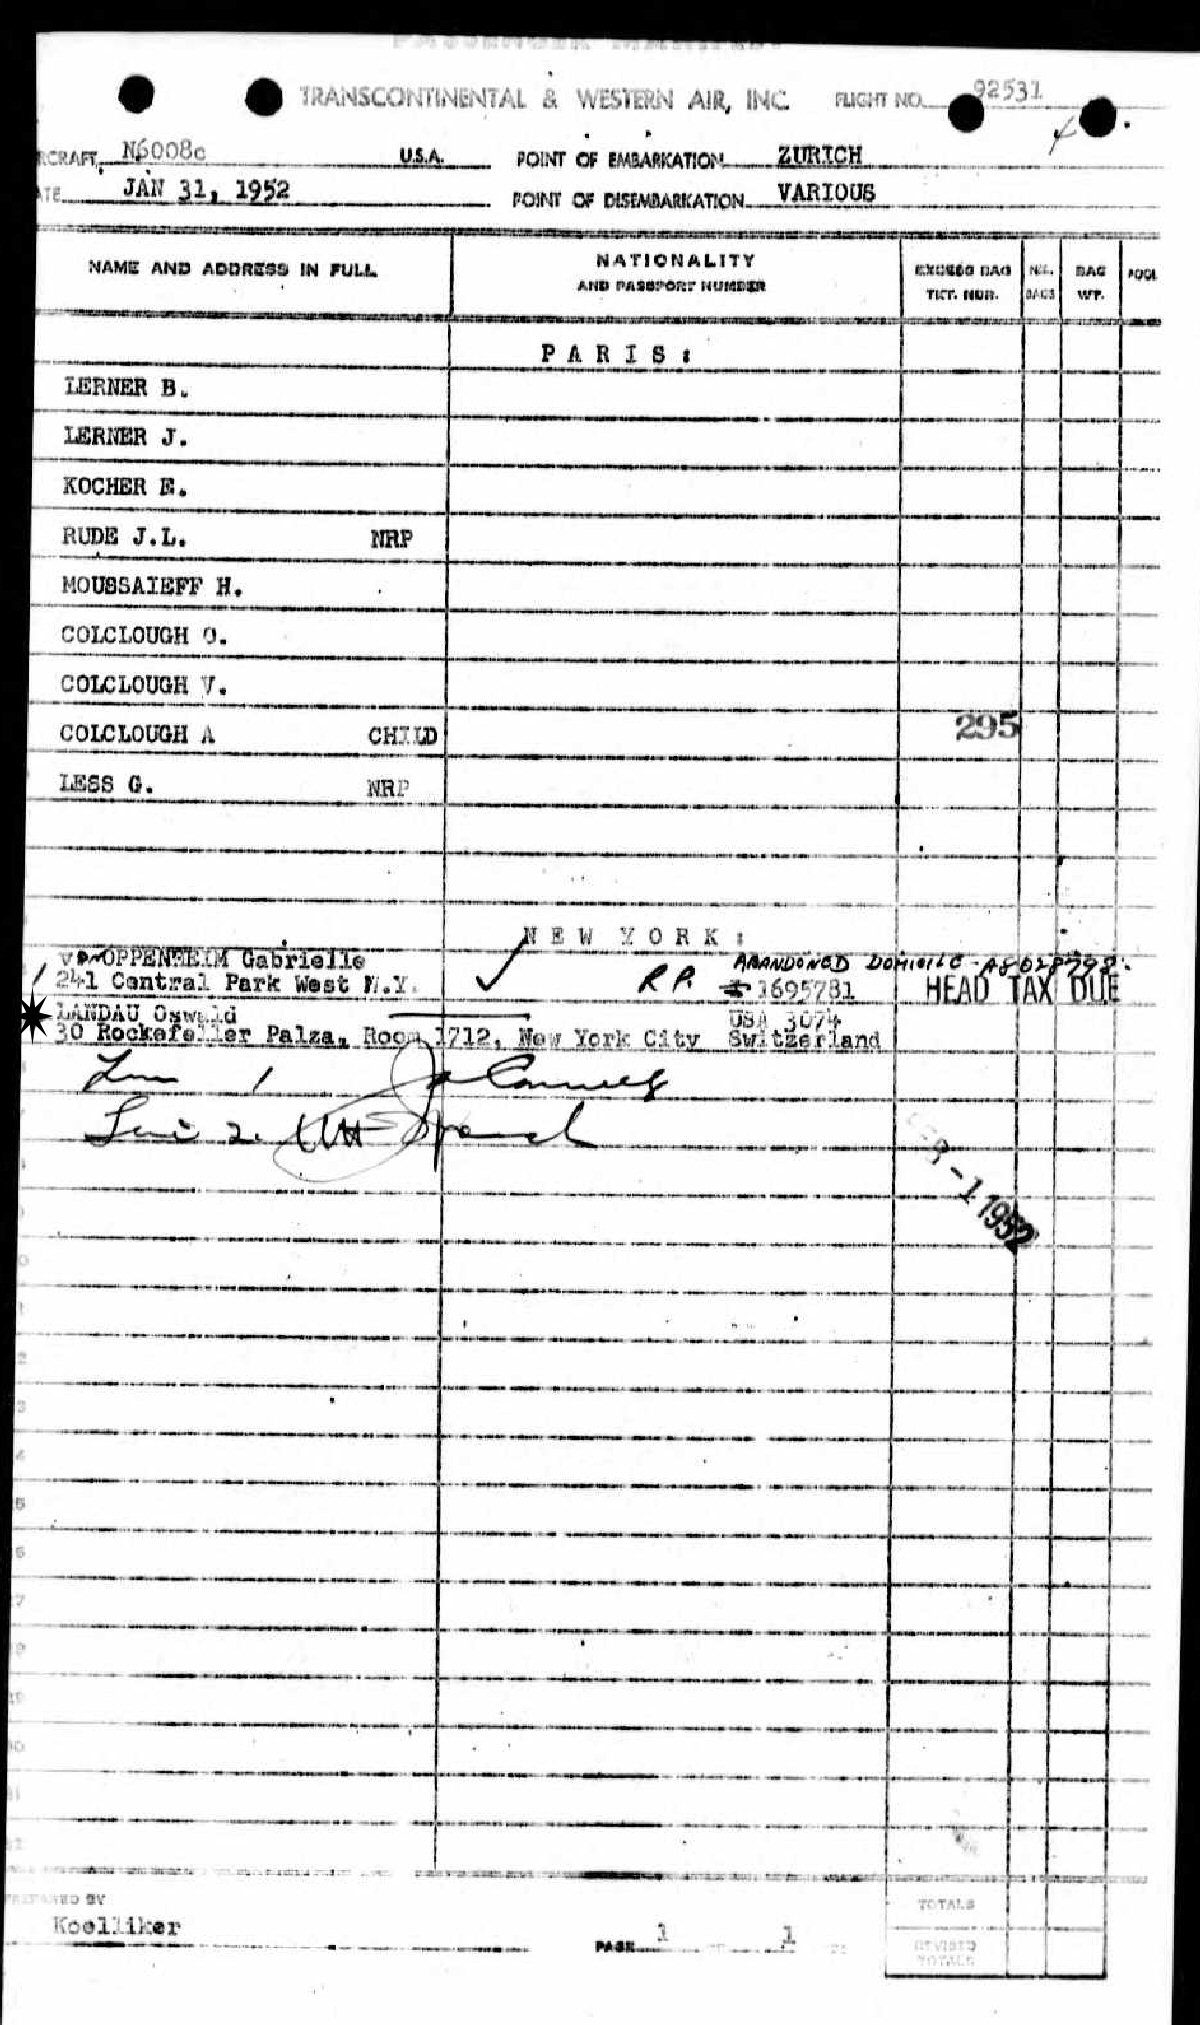 PASSENGER MANIFEST
TRANSCONTINENTAL & WESTERN AIR, INC. FLIGHT NO. 92531
RCRAFT N6008c U.S.A. POINT OF EMBARKATION ZURICH
ATE JAN 31, 1952 POINT OF DISEMBARKATION VARIOUS
NAME AND ADDRESS IN FULL NATIONALITY AND PASSPORT NUMBER EXCESS BAG TKT. NBR. NO. BAGS BAG WT.
PARIS:
LERNER B.
LERNER J.
KOCHER E.
RUDE J.L. NRP
MOUSSAIEFF H.
COLCLOUGH O.
COLCLOUGH V.
COLCLOUGH A CHILD 295
LESS G. NRP
NEW YORK:
OPPENHEIM Gabrielle ABANDONED DOMICILE
241 Central Park West N.Y. R.P. 1695781 HEAD TAX DUE
LANDAU Oswald USA 3074
30 Rockefeller Palza, Room 1712, New York City Switzerland
-1 1952
PREPARED BY
Koelliker
PAGE 1 1
TOTALS
REVISED TOTALS